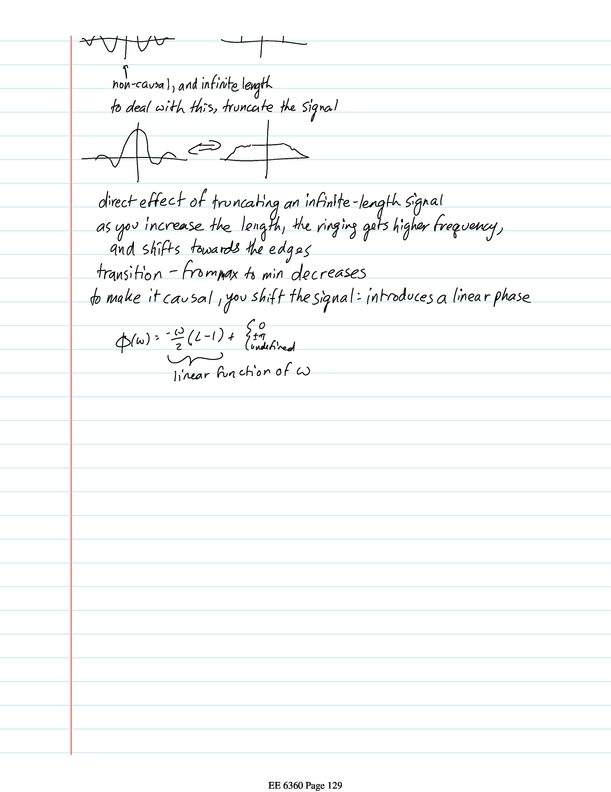 non-causal, and infinite length
to deal with this, truncate the signal
direct effect of truncating an infinite-length signal
as you increase the length, the ringing gets higher frequency,
and shifts towards the edges
transition - from max to min decreases
to make it causal, you shift the signal: introduces a linear phase
ϕ(ω) = -ω/2 (L-1) + { 0
±π
undefined
linear function of ω
EE 6360 Page 129